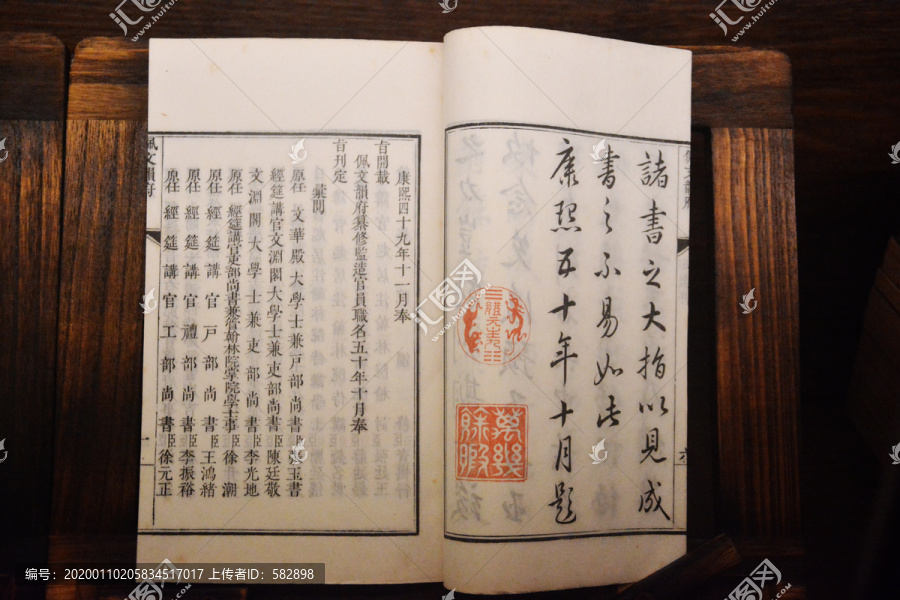 諸書之大指以見成
書之不易如此
康熙五十年十月題
體元主人
萬幾餘暇
康熙四十九年十一月奉
旨開載
佩文韻府纂修監造官員職名五十年十月奉
旨刊定
彙閱
原任文華殿大學士兼戶部尚書臣張玉書
經筵講官文淵閣大學士兼吏部尚書臣陳廷敬
文淵閣大學士兼吏部尚書臣李光地
原任經筵講官吏部尚書兼管翰林院掌院學士事臣徐潮
原任經筵講官戶部尚書臣王鴻緒
原任經筵講官禮部尚書臣李振裕
原任經筵講官工部尚書臣徐元正
佩文韻府
一
编号：20200110205834517017 上传者ID：582898